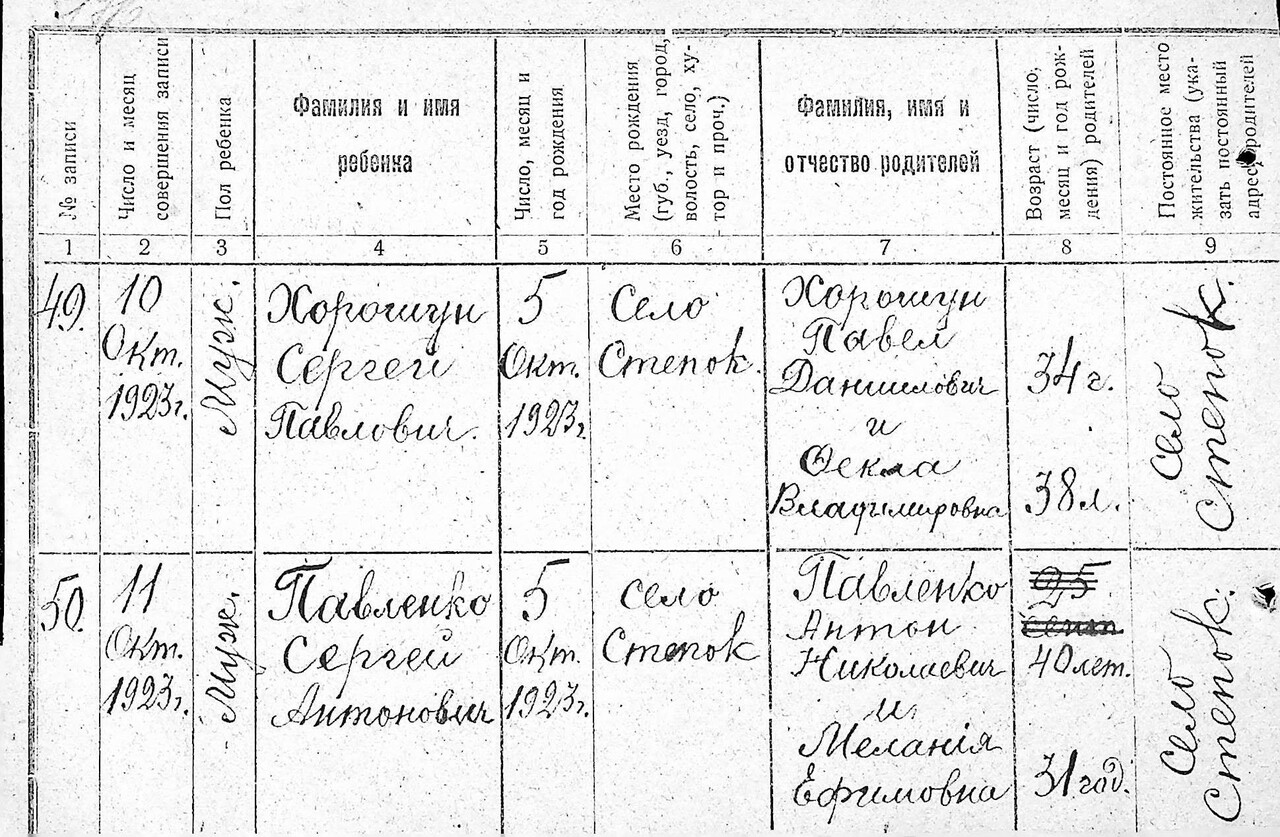 № записи
Число и месяц
совершения записи
Пол ребенка
Фамилия и имя
ребенка
Число, месяц и
год рождения
Место рождения
(губ., уезд, город,
волость, село, ху-
тор и проч.)
Фамилия, имя и
отчество родителей
Возраст (число,
месяц и год рож-
дения) родителей
Постоянное место
жительства (ука-
зать постоянный
адрес родителей
1 2 3 4 5 6 7 8 9
49.
10
Окт.
1923г.
Муж.
Хорошун
Сергей
Павлович.
5
Окт.
1923г.
Село
Степок.
Хорошун
Павел
Данилович
и
Ѳекла
Владимировна
34 г.
38 л.
Село
Степок.
50.
11
Окт.
1923г.
Муж.
Павленко
Сергей
Антонович
5
Окт.
1923г.
село
Степок
Павленко
Антон
Николаевич
и
Меланія
Ефимовна
25
Сент
40 лет.
31 год.
Село
Степок.